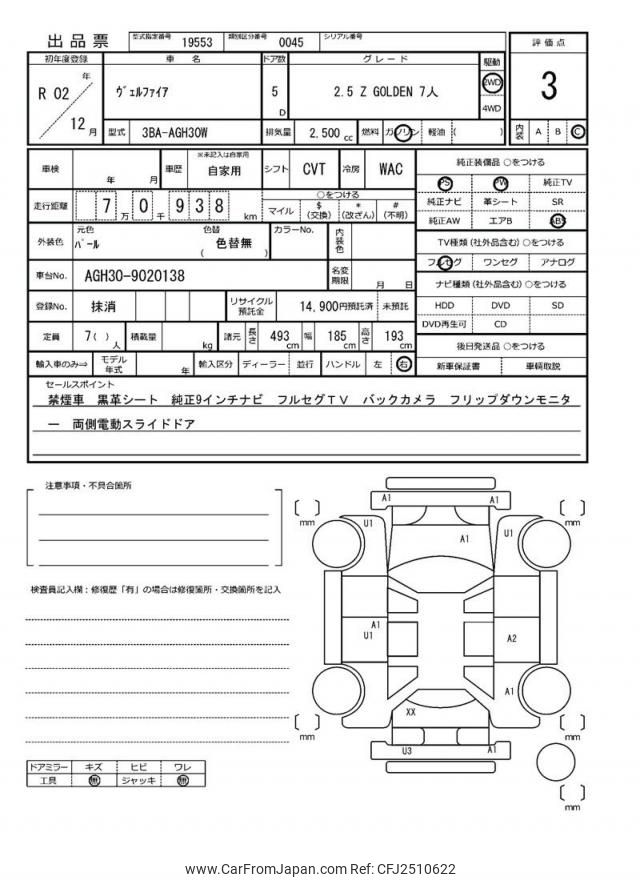 出品票 型式指定番号 19553 類別区分番号 0045 シリアル番号
初年度登録 車名 ドア数 グレード 駆動 評価点
R 02 年 12 月 ヴェルファイア 5 D 2.5 Z GOLDEN 7人 2WD 4WD 3
型式 3BA-AGH30W 排気量 2,500 cc 燃料 ガソリン 軽油 ( ) 内装 A B C
車検 年 月 車歴 ※未記入は自家用 自家用 シフト CVT 冷房 WAC
走行距離 7 万 0 千 9 3 8 km ○をつける マイル $ (交換) * (改ざん) # (不明)
外装色 元色 パール 色替 色替無 ( ) カラーNo. 内装色
車台No. AGH30-9020138 名変期限 月 日
登録No. 抹消 リサイクル預託金 14,900円預託済 未預託
定員 7( ) 人 積載量 kg 諸元 長さ 493 cm 幅 185 cm 高さ 193 cm
輸入車のみ⇒ モデル年式 年 輸入区分 ディーラー 並行 ハンドル 左 右
純正装備品 ○をつける
PS PW 純正TV
純正ナビ 革シート SR
純正AW エアB ABS
TV種類(社外品含む)○をつける
フルセグ ワンセグ アナログ
ナビ種類(社外品含む)○をつける
HDD DVD SD
DVD再生可 CD
後日発送品 ○をつける
新車保証書 車輌取説
セールスポイント
禁煙車 黒革シート 純正9インチナビ フルセグTV バックカメラ フリップダウンモニタ
ー 両側電動スライドドア
注意事項・不具合箇所
検査員記入欄:修復歴「有」の場合は修復箇所・交換箇所を記入
ドアミラー キズ ヒビ ワレ
工具 無 ジャッキ 無
A1 A1
mm mm
U1 A1 U1
A1
U1 A2
A1
XX
mm mm
U3 A1
mm
www.CarFromJapan.com Ref: CFJ2510622